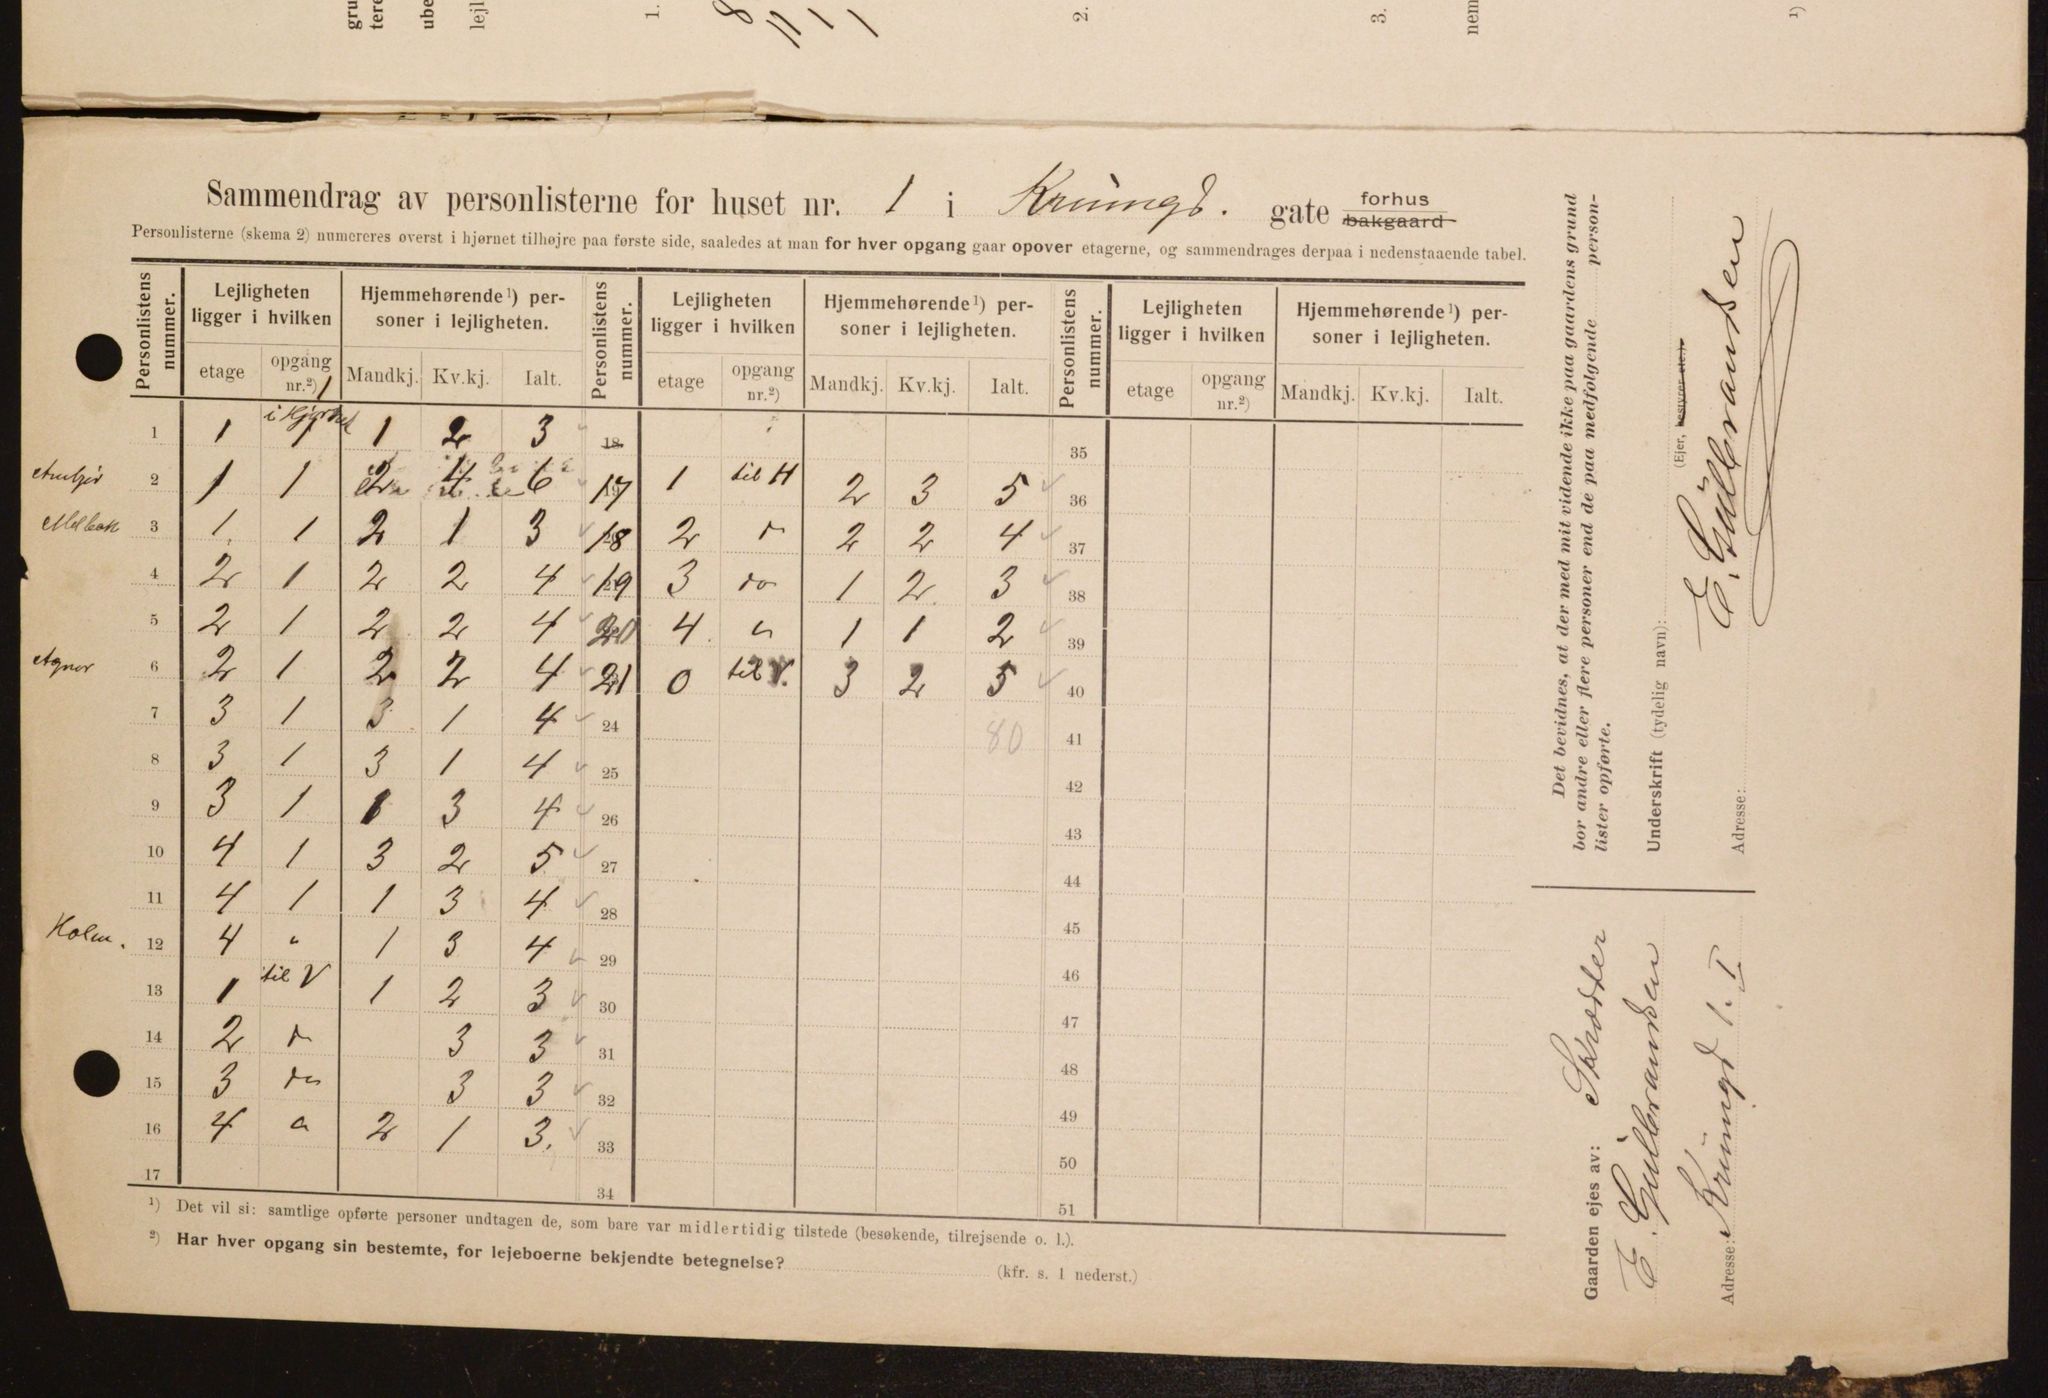 1.
2.
3.
1)
Sammendrag av personlisterne for huset nr. 1 i Krumgd. gate forhus bakgaard
Personlisterne (skema 2) numereres øverst i hjørnet tilhøjre paa første side, saaledes at man for hver opgang gaar opover etagerne, og sammendrages derpaa i nedenstaaende tabel.
Personlistens nummer. | Lejligheten ligger i hvilken | Hjemmehørende¹) personer i lejligheten. | Personlistens nummer. | Lejligheten ligger i hvilken | Hjemmehørende¹) personer i lejligheten. | Personlistens nummer. | Lejligheten ligger i hvilken | Hjemmehørende¹) personer i lejligheten.
etage | opgang nr.²) | Mandkj. | Kv.kj. | Ialt. | etage | opgang nr.²) | Mandkj. | Kv.kj. | Ialt. | etage | opgang nr.²) | Mandkj. | Kv.kj. | Ialt.
1 | 1 | i Hjørnet 1 | 1 | 2 | 3 | 18 | 35
2 | 1 | 1 | 2 | 4 | 6 | 17 | 1 | til H | 2 | 3 | 5 | 36
3 | 1 | 1 | 2 | 1 | 3 | 18 | 2 | do | 2 | 2 | 4 | 37
4 | 2 | 1 | 2 | 2 | 4 | 19 | 3 | do | 1 | 2 | 3 | 38
5 | 2 | 1 | 2 | 2 | 4 | 20 | 4 | " | 1 | 1 | 2 | 39
Agner 6 | 2 | 1 | 2 | 2 | 4 | 21 | 0 | til V. | 3 | 2 | 5 | 40
7 | 3 | 1 | 3 | 1 | 4 | 24 | 80 | 41
8 | 3 | 1 | 3 | 1 | 4 | 25 | 42
9 | 3 | 1 | 1 | 3 | 4 | 26 | 43
10 | 4 | 1 | 3 | 2 | 5 | 27 | 44
11 | 4 | 1 | 1 | 3 | 4 | 28 | 45
Holm. 12 | 4 | " | 1 | 3 | 4 | 29 | 46
13 | 1 | til V | 1 | 2 | 3 | 30 | 47
14 | 2 | do | 3 | 3 | 31 | 48
15 | 3 | do | 3 | 3 | 32 | 49
16 | 4 | " | 2 | 1 | 3. | 33 | 50
17 | 34 | 51
¹) Det vil si: samtlige opførte personer undtagen de, som bare var midlertidig tilstede (besøkende, tilrejsende o. l.).
²) Har hver opgang sin bestemte, for lejeboerne bekjendte betegnelse? (kfr. s. 1 nederst.)
Det bevidnes, at der med mit vidende ikke paa gaardens grund
bor andre eller flere personer end de paa medfølgende person-
lister opførte.
Underskrift (tydelig navn):
(Ejer, bestyrer etc.).
E. Gulbrandsen
Adresse:
Gaarden ejes av: Skrædder
E. Gulbrandsen
Adresse: Krumgd 1. I